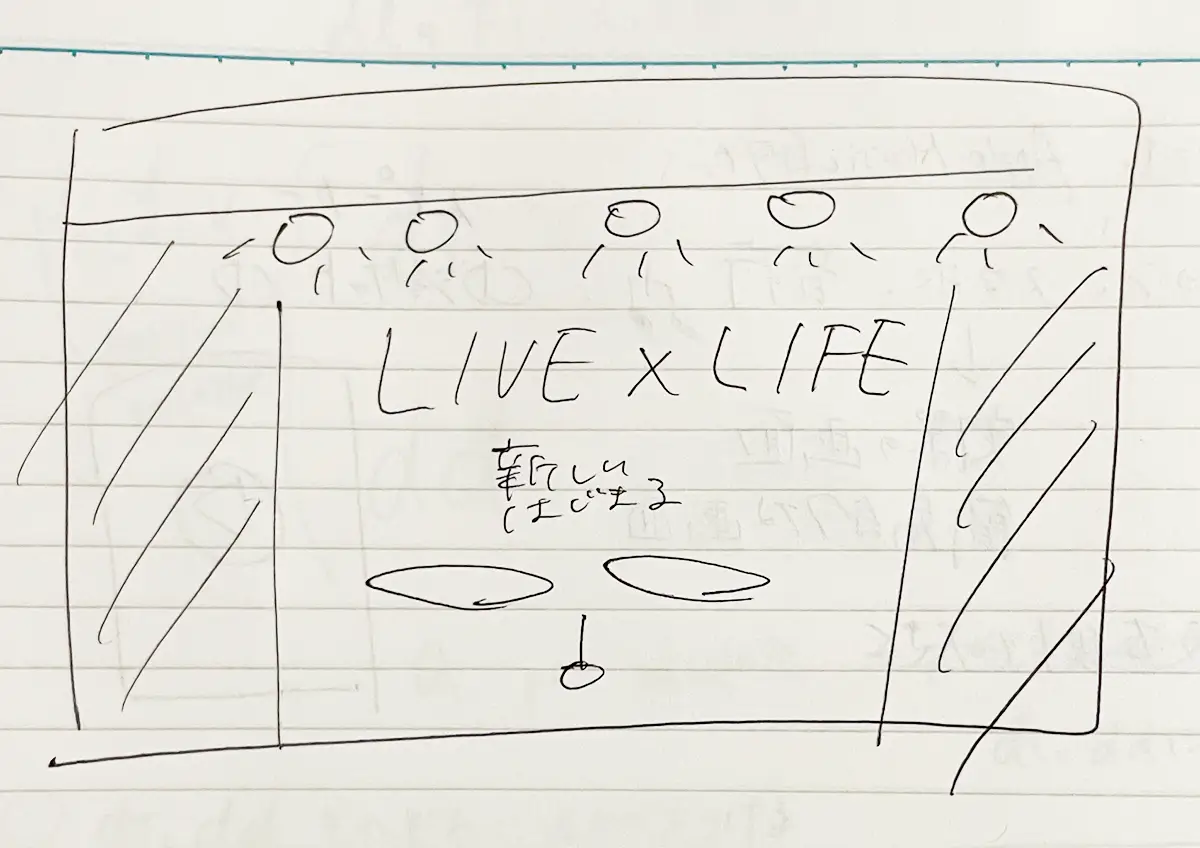 LIVE x LIFE
新しい
はじまる